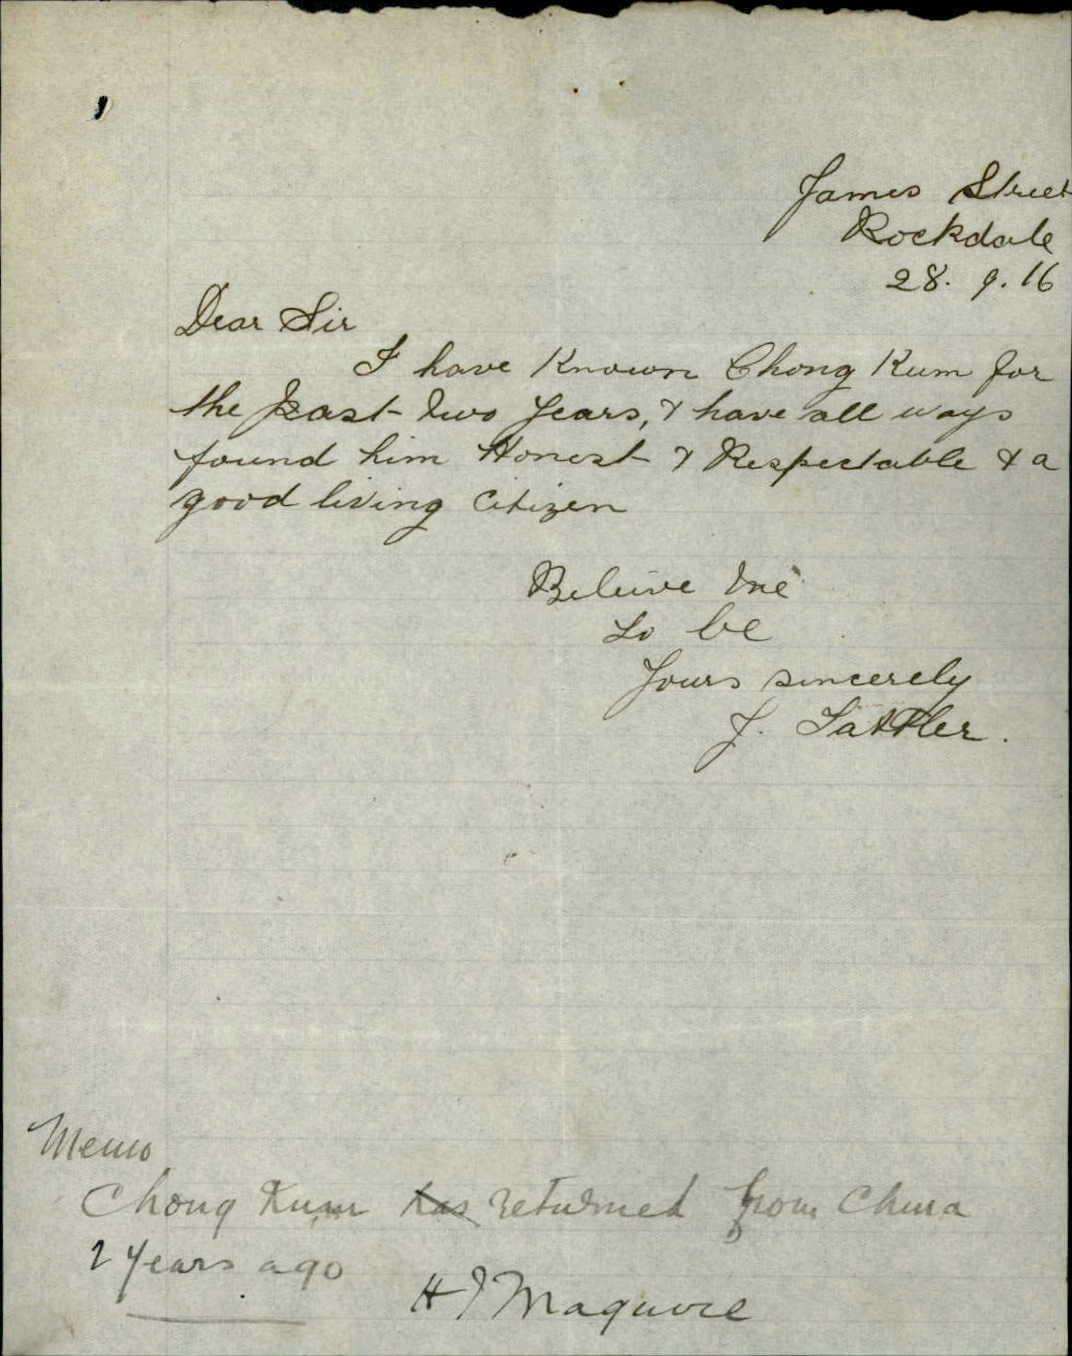 James Street
Rockdale
28. 9. 16
Dear Sir
I have Known Chong Kum for
the past two years, & have all ways
found him Honest & Respectable & a
good living Citizen
Beleive me
to be
Yours sincerely
J. Sattler.
Memo
Chong Kum has returned from China
2 years ago
H J Maguire